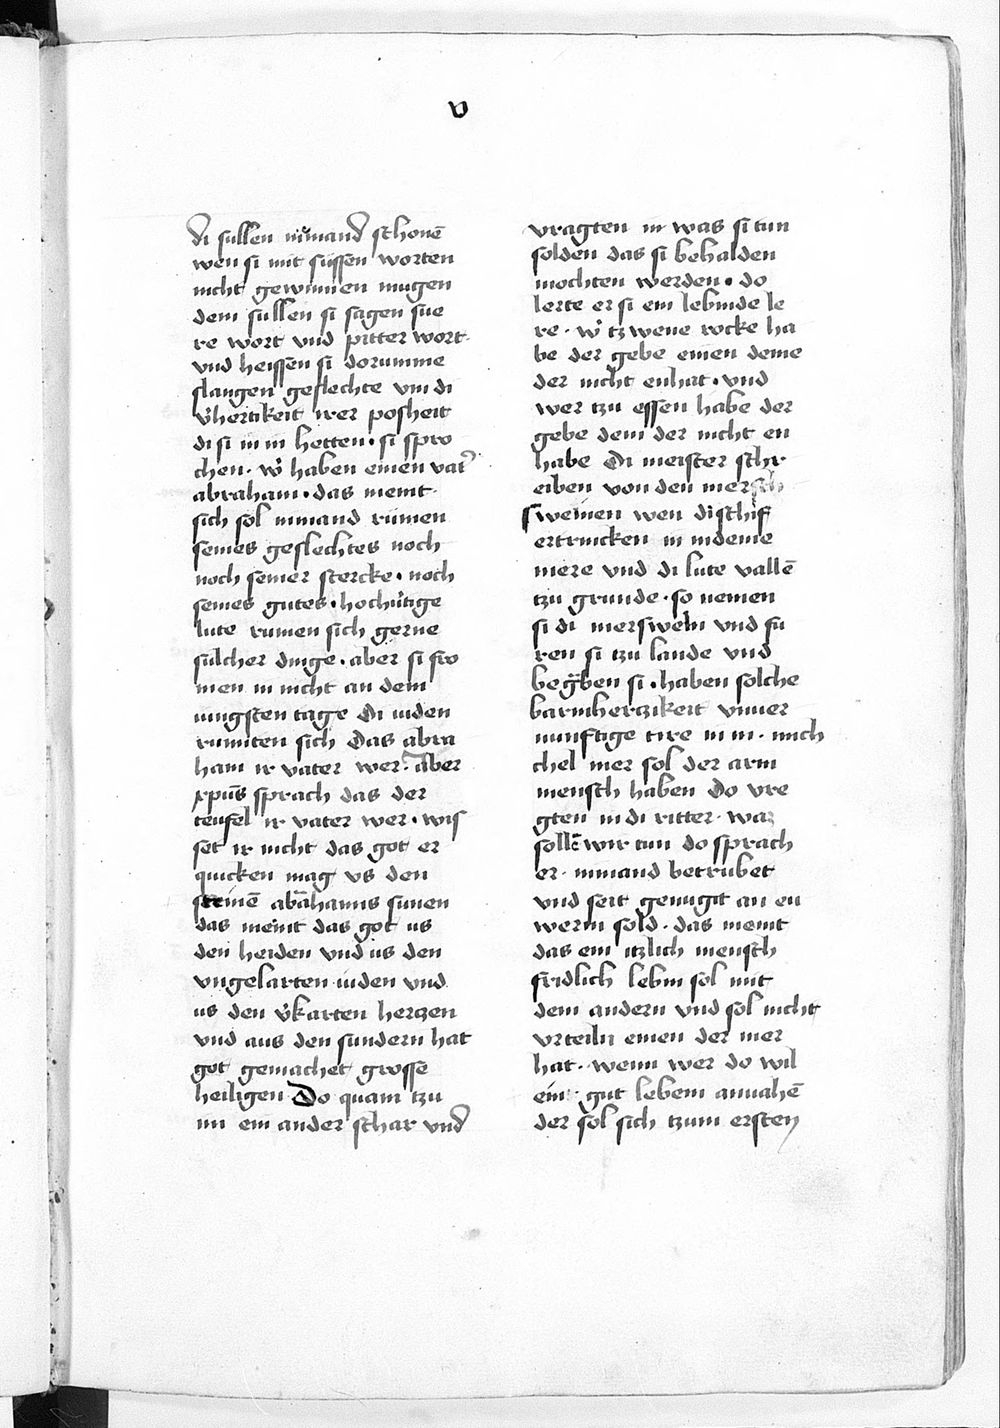 v
di sullen nimand schonē
wen si mit sussen worten
nicht gewinnen mugen
dem sullen si sagen sue
re wort vnd pitter wort.
vnd heissen si dorumme
slangen geslechte vm di
v̓hertikeit irer posheit
di si in in hetten · si spro
chen · w̓ haben einen vat̓
abraham · das meint
sich sol nimand rumen
seines geslechtes noch
noch seiner stercke · noch
seines gutes · hochu̓tige
lute rumen sich gerne
sulcher dinge · aber si fro
men in nicht an dem
iungsten tage Di iuden
rumten sich Das abra
ham ir vater wer · aber
xpūs sprach das der
teufel ir vater wer · wis
set ir nicht das got er
quicken mag vs den
steinē abāhams sunen
das meint das got us
den heiden vnd us den
vngelarten iuden vnd
us den v̓karten herczen
vnd aus den sundern hat
got gemachet grosse
heiligen Do quam tzu
im ein ander schar vnd
vragten in was si tun
solden das si behalden
mochten werden · do
lerte er si ein lebinde le
re · w̓ tzwene rocke ha
be der gebe einen deme
der nicht enhat · vnd
wer tzu essen habe der
gebe dem der nicht en
habe Di meister schr
eiben von den mersch
sweinen wen di schif
ertrincken in indeme
mere vnd di lute vallē
tzu grunde · so nemen
si di merswein vnd fu
ren si tzu lande vnd
begᵃben si · haben solche
barmherczikeit vnuer
nunftige tire in in · mich
chel mer sol der arm
mensch haben Do vre
gten in di ritter · waz
sollē wir tun do sprach
er · nimand betrubet
vnd seit genugit an eu
werm sold · das meint
das ein itzlich mensch
fridlich lebin sol mit
dem andern vnd sol nicht
vrteiln einen der mer
hat · wenn wer do wil
ein gut lebem anuahē
der sol sich tzum ersten